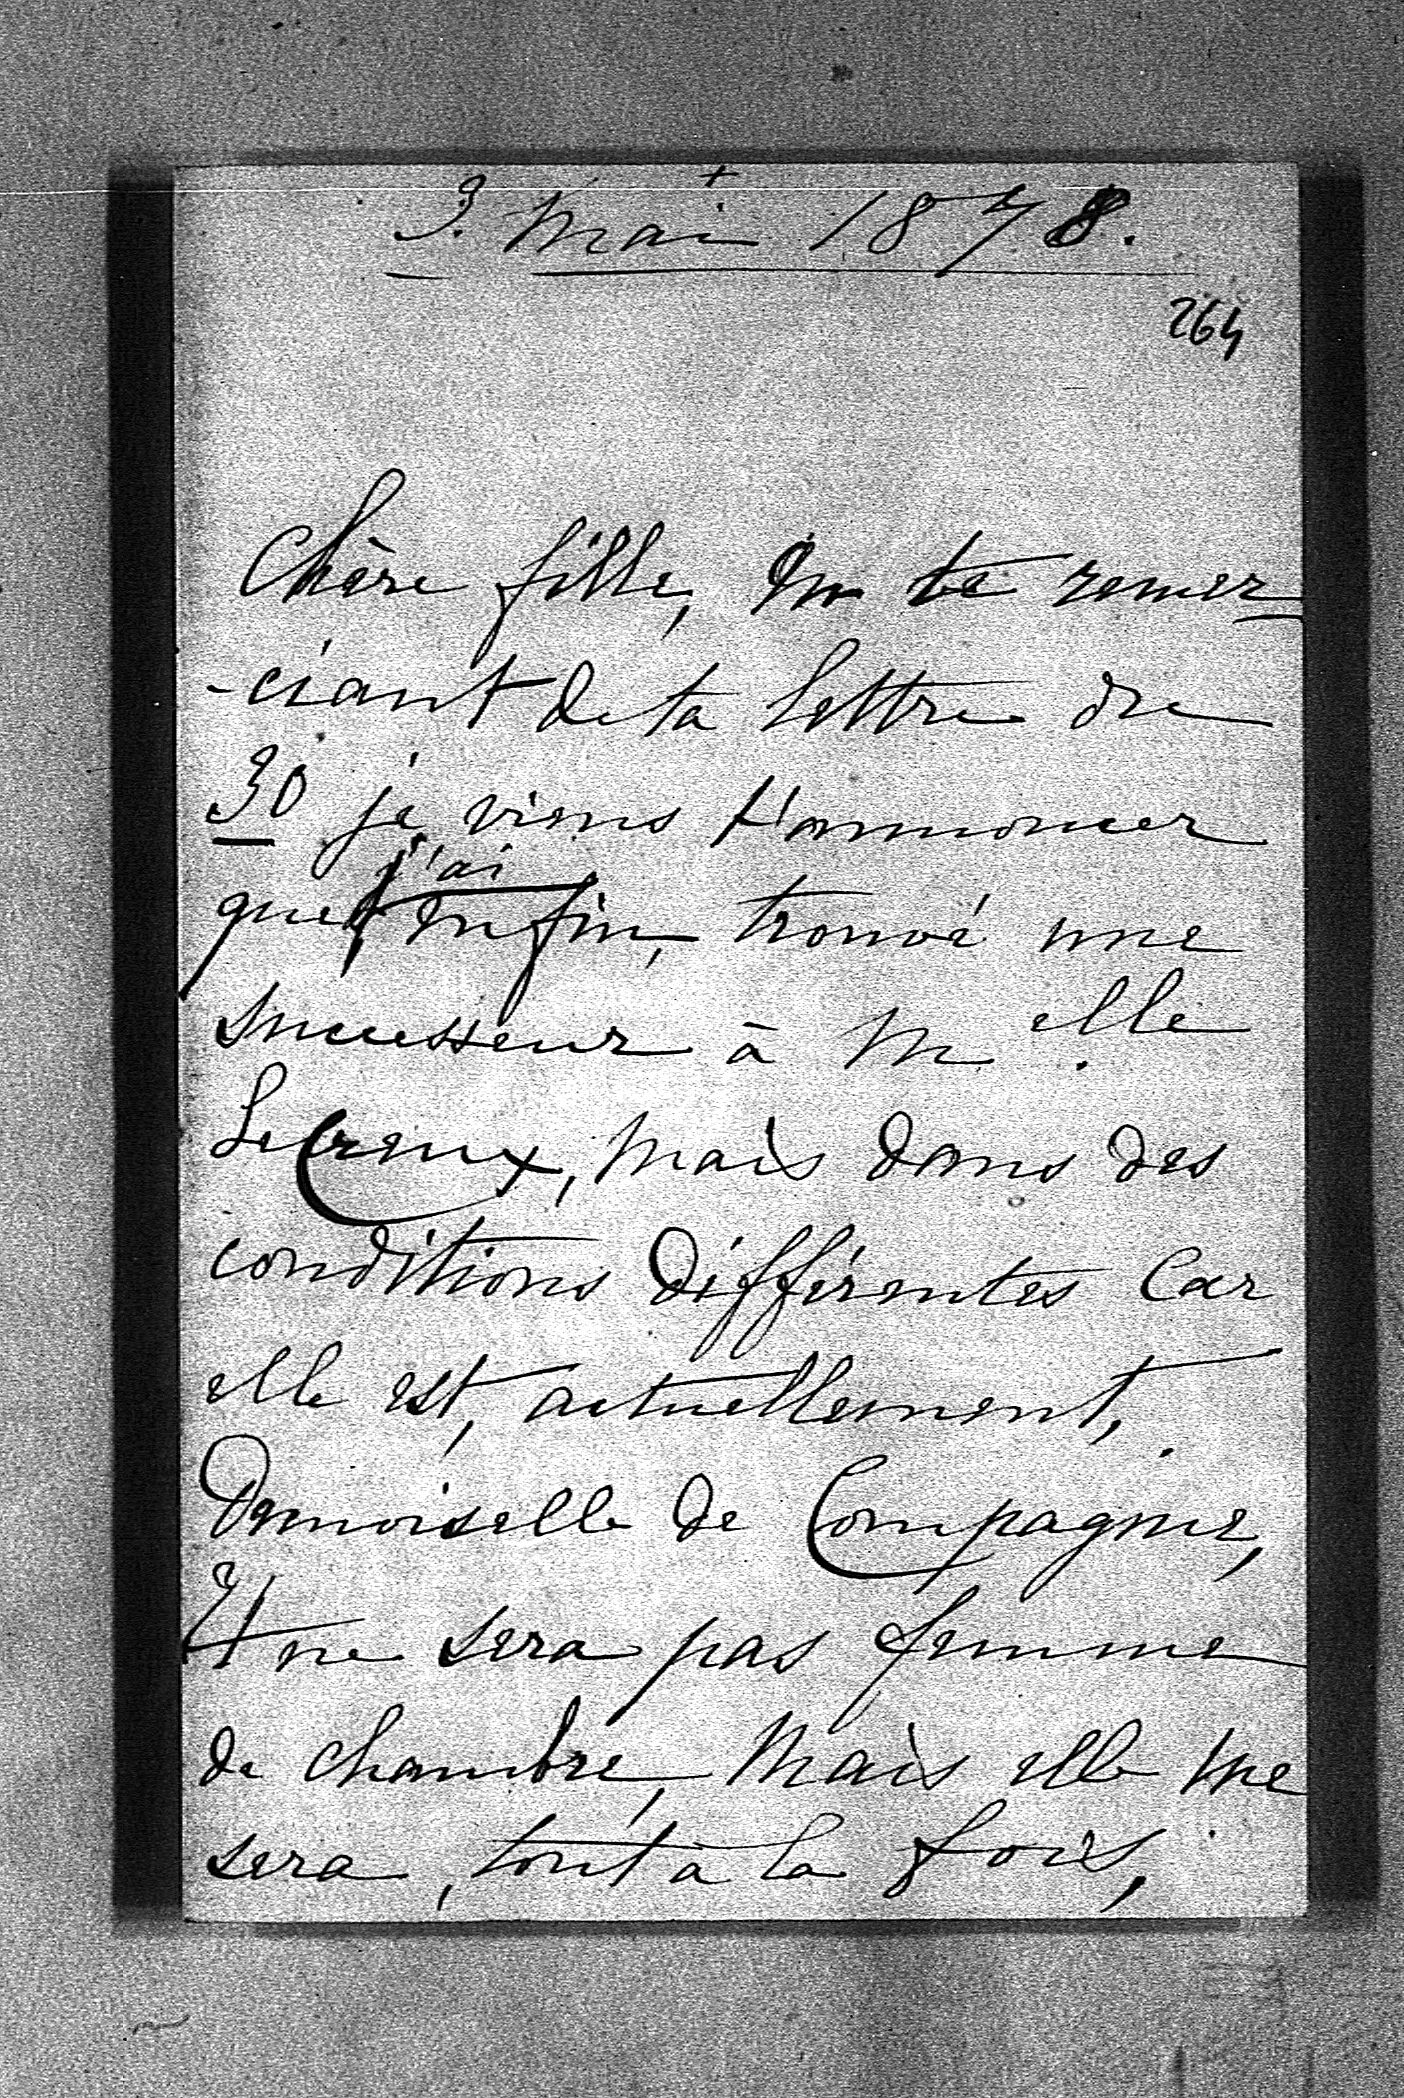 3. Mai 1878.
264
Chère fille, En te remer
-ciant de ta lettre du
30 je viens t'annoncer
que j'ai enfin, trouvé une
successeur à M.elle
LeCreux, mais dans des
conditions différentes Car
elle est, actuellement,
Demoiselle de Compagnie,
Et ne sera pas femme
de chambre, Mais elle me
sera, tout à la fois,